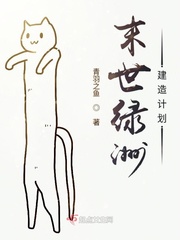 末世绿洲
建造计划
青羽之鱼◎著